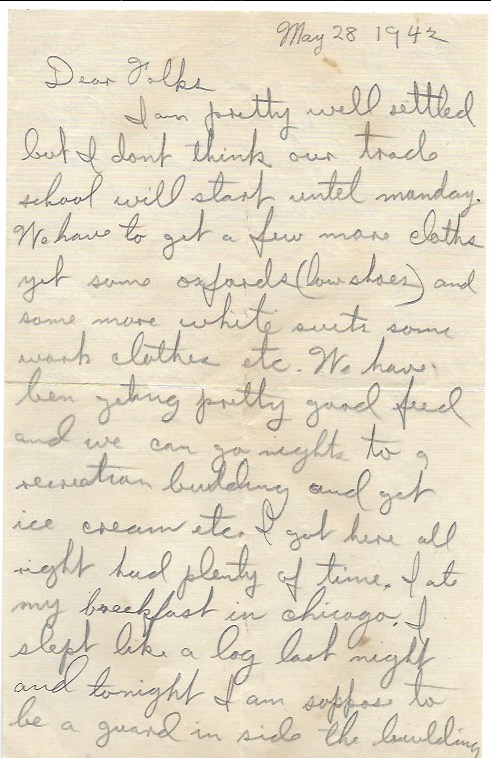 May 28 1942
Dear Folks
I am pretty well settled
but I dont think our trade
school will start untel monday.
We have to get a few more cloths
yet some oxfords (low shoes) and
some more white suits some
work clothes etc. We have
ben geting pretty good feed
and we can go nights to a
recreation building and get
ice cream etc. I got here all
right had plenty of time. I ate
my breekfast in chicago. I
slept like a log last night
and tonight I am soppose to
be a guard in side the building